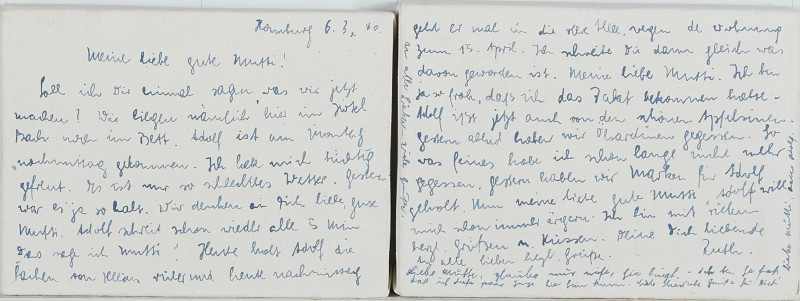 Hamburg 6.3.40.
Meine liebe gute Mutti!
Soll ich Dir einmal sagen, was wir jetzt
machen? Wir liegen nämlich hier im Hotel
Bach noch im Bett. Adolf ist am Montag
nachmittag gekommen. Ich habe mich tüchtig
gefreut. Es ist nur so schlechtes Wetter. Gestern
war es ja so kalt. Wir denken an Dich liebe, gute
Mutti. Adolf schreit schon wieder alle 5 Min
Das sage ich Mutti! Heute holt Adolf die
Sachen von wieder und heute nachmittag
geht er mal in die wegen de Wohnung
zum 15. April. Ich schreibe Dir dann gleich was
davon geworden ist. Meine liebe Mutti. Ich bin
ja so froh, daß ich das Paket bekommen habe.
Adolf ißt jetzt auch von den schönen Apfelsinen.
Gestern abend haben wir Ölsardinen gegessen. So
was feines habe ich schon lange nicht mehr
gegessen. Gestern haben wir Marken für Adolf
geholt. Nun meine liebe gute Mutti, Adolf will
mich schon immer ärgern. Ich bin mit vielen
herzl. Grüßen u. Küssen. Deine Dich liebende
Ruth.
An alle lieben herzl. Grüße.
Liebe Mutti, glaube mir